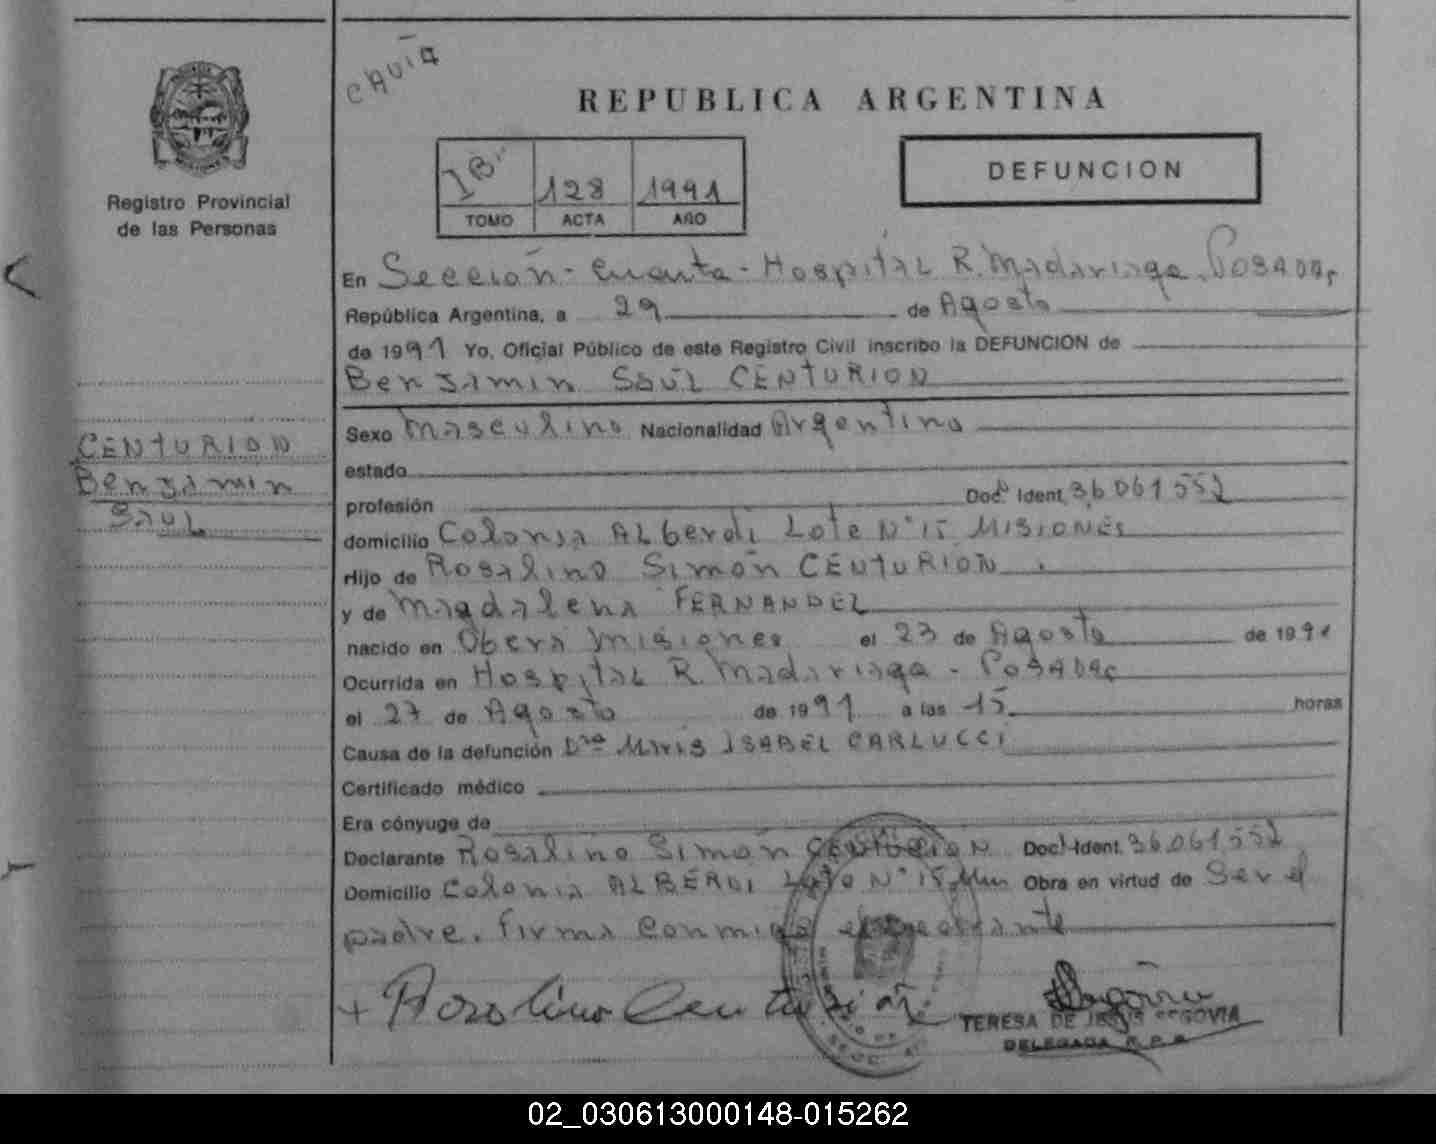 CAVIA
REPUBLICA ARGENTINA
DEFUNCION
IB 128 1991
TOMO ACTA AÑO
Registro Provincial
de las Personas
En Sección - Cuarta - Hospital R. Madariaga. Posadas
República Argentina, a 29 de Agosto
de 1991 Yo, Oficial Público de este Registro Civil inscribo la DEFUNCION de
Benjamin Saúl CENTURION
Sexo Masculino Nacionalidad Argentino
estado
profesión Doc. Ident. 36.061.552
domicilio Colonia ALberdi Lote N° 15 MISIONES
Hijo de Rosalino Simón CENTURION
y de Magdalena FERNANDEZ
nacido en Oberá Misiones el 23 de Agosto de 1991
Ocurrida en Hospital R. Madariaga - Posadas
el 27 de Agosto de 1991 a las 15 horas
Causa de la defunción Dra ISABEL CARLUCCI
Certificado médico
Era cónyuge de
Declarante Rosalino Simón CENTURION Doc. Ident. 36.061.552
Domicilio Colonia ALBERDI Lote N° 15 Obra en virtud de Ser el
padre. Firma conmigo el declarante
CENTURION
Benjamin
SAUL
+ Rosalino Centurión
TERESA DE JESUS SEGOVIA
DELEGADA R.P.P.
02_030613000148-015262